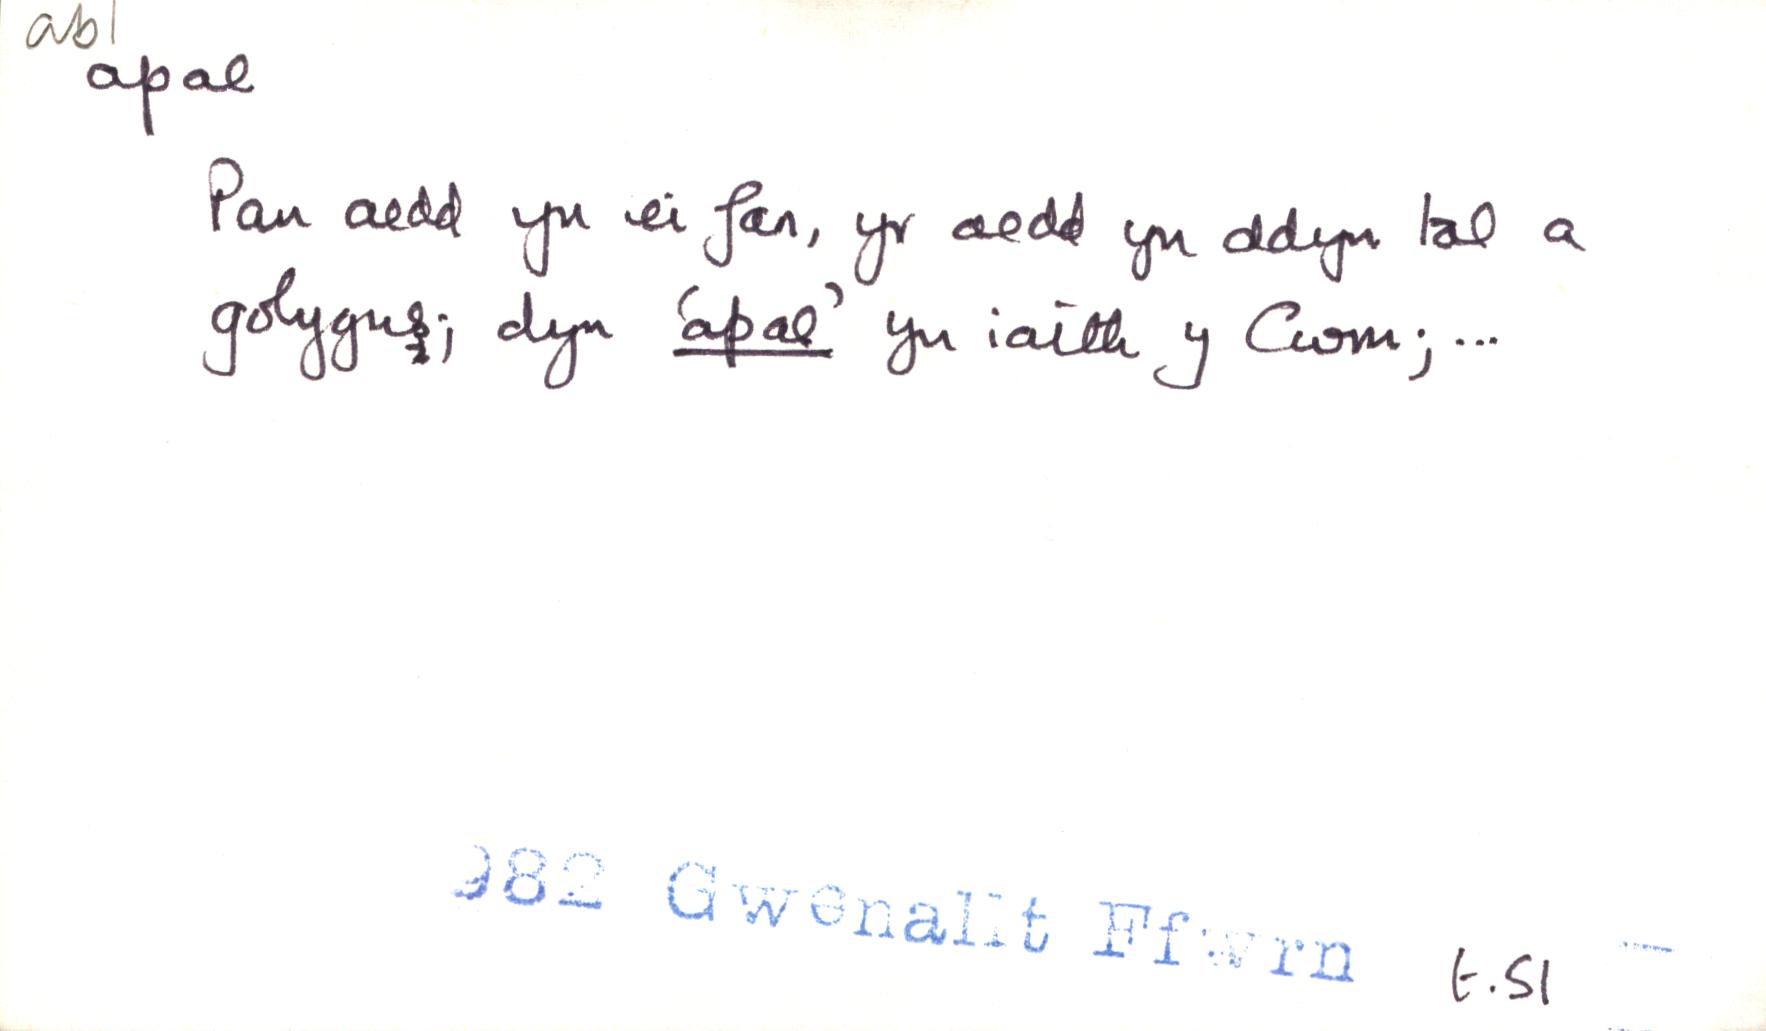 abl
apal
Pan aedd yn ei fan, yr aedd yn ddyn tal a
golygus; dyn 'apal' yn iaith y Cwm; ...
982 Gwenallt Ffwrn
t.51